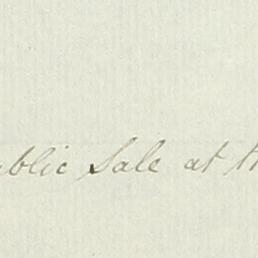 ublic Sale at th